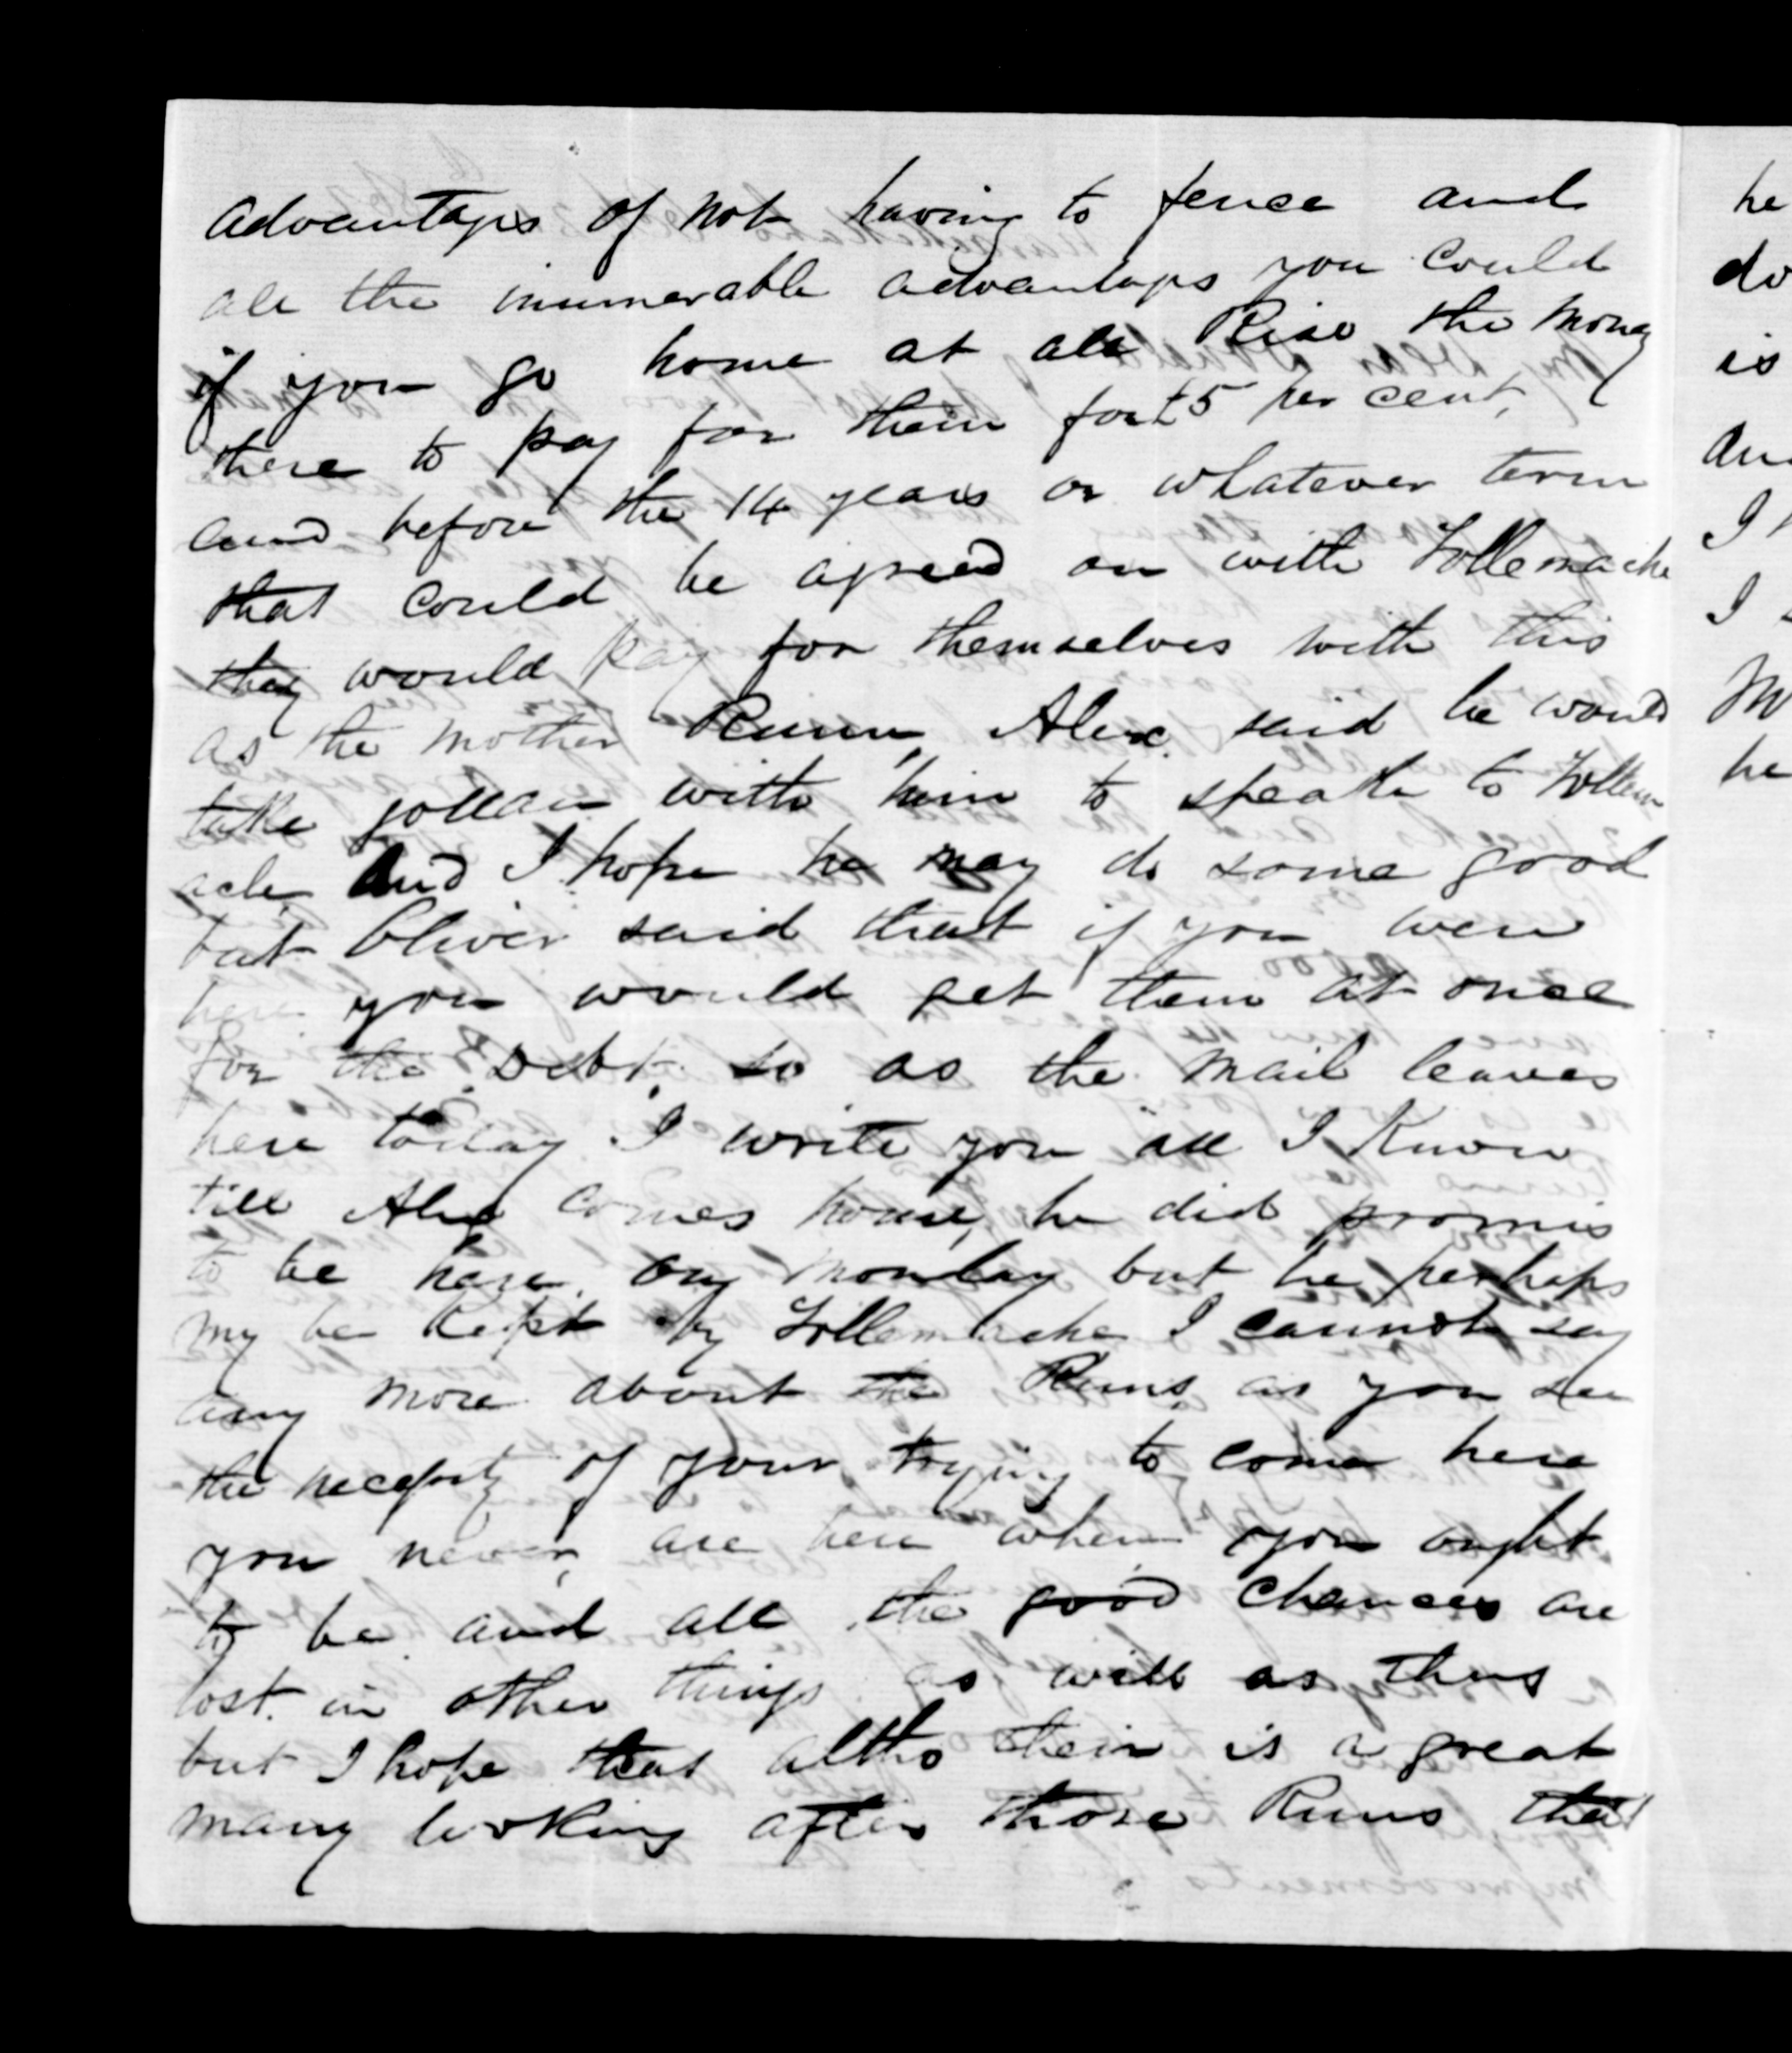 advantages of not having to fence and
all the inumerable advantages you could
if you go home at all Rise the money
there to pay for them for £5 per cent,
and before the 14 years or whatever term
that could be agreed on with Tollemache
they would pay for themselves with this
as the mother Runn, Alex said he would
take with him to speak to Tollem
ache and I hope he may do some good
but Oliver said that if you were
here you would get them at once
for the Debt, so as the mail leaves
here today I write you all I Know
till Alex comes home, he did promis
to be here on monday but he perhaps
my be Kept by Tollemache I cannot say
any more about the Runs as you see
the necessity of your trying to come here
you never are here when you ought
to be and all the good chances are
lost in other things as well as this
but I hope that altho their is a great
many looking after those Runs that
he
do
is
an
I
I
M
he